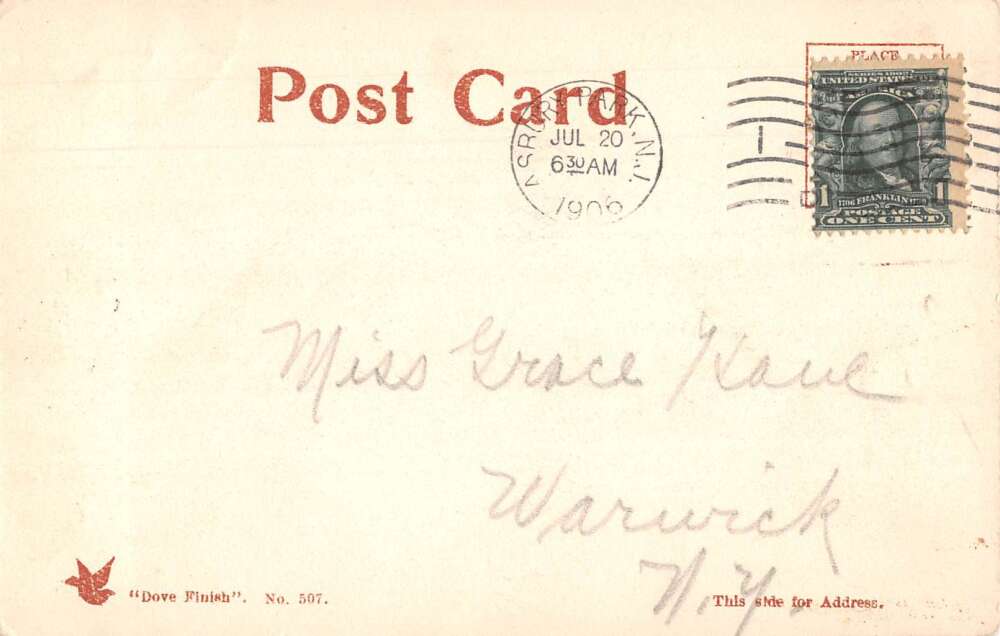 Post Card
PLACE
ASBURY PARK, N.J.
JUL 20
6 30 AM
1906
1
SERIES 1902
UNITED STATES OF AMERICA
1 1
1706 FRANKLIN 1790
POSTAGE
ONE CENT
Miss Grace Kane
Warwick
N.Y.
"Dove Finish". No. 507.
This side for Address.